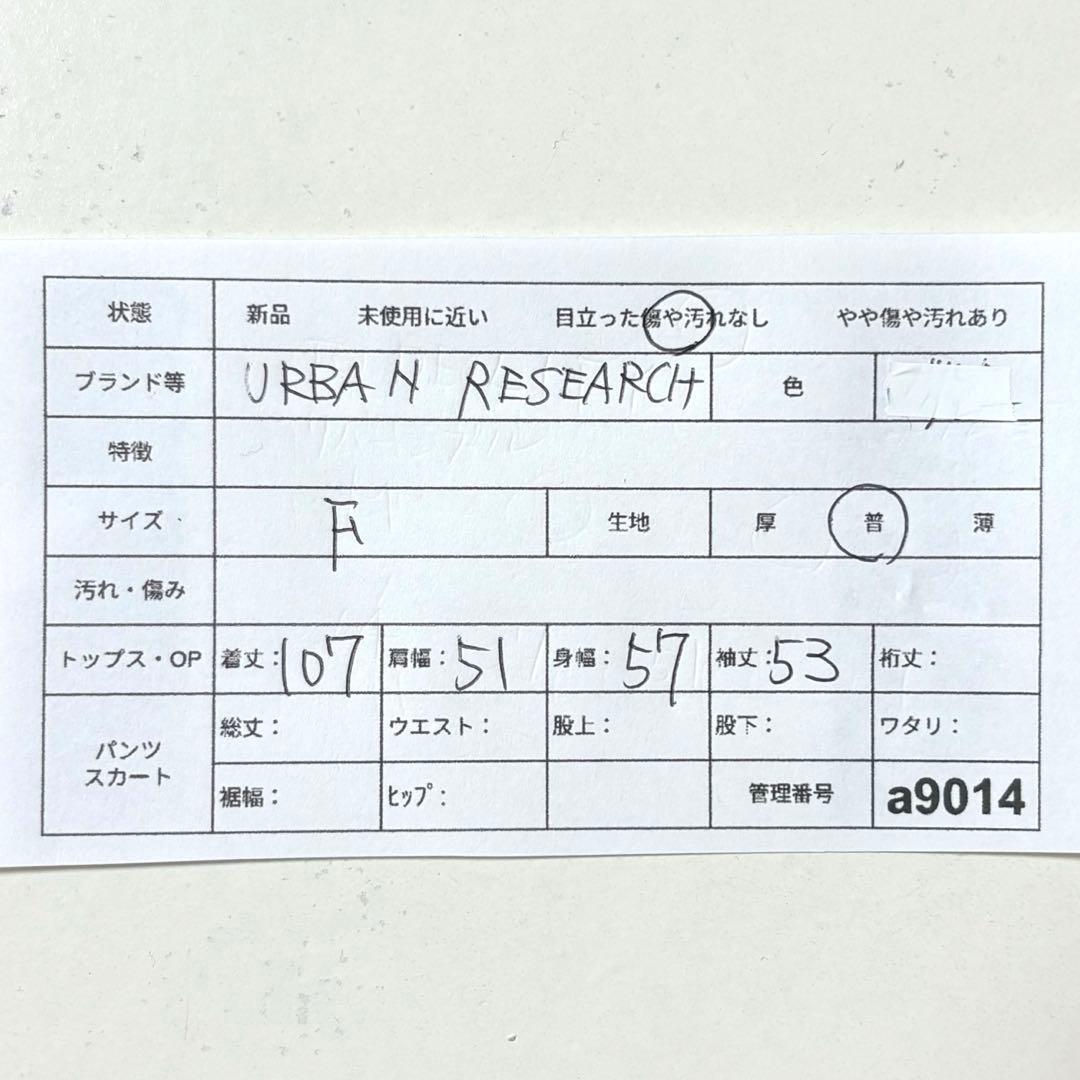 状態 新品 未使用に近い 目立った傷や汚れなし やや傷や汚れあり
ブランド等 URBAN RESEARCH 色
特徴
サイズ F 生地 厚 普 薄
汚れ・傷み
トップス・OP 着丈：107 肩幅：51 身幅：57 袖丈：53 裄丈：
パンツ
スカート
総丈： ウエスト： 股上： 股下： ワタリ：
裾幅： ﾋｯﾌﾟ： 管理番号 a9014